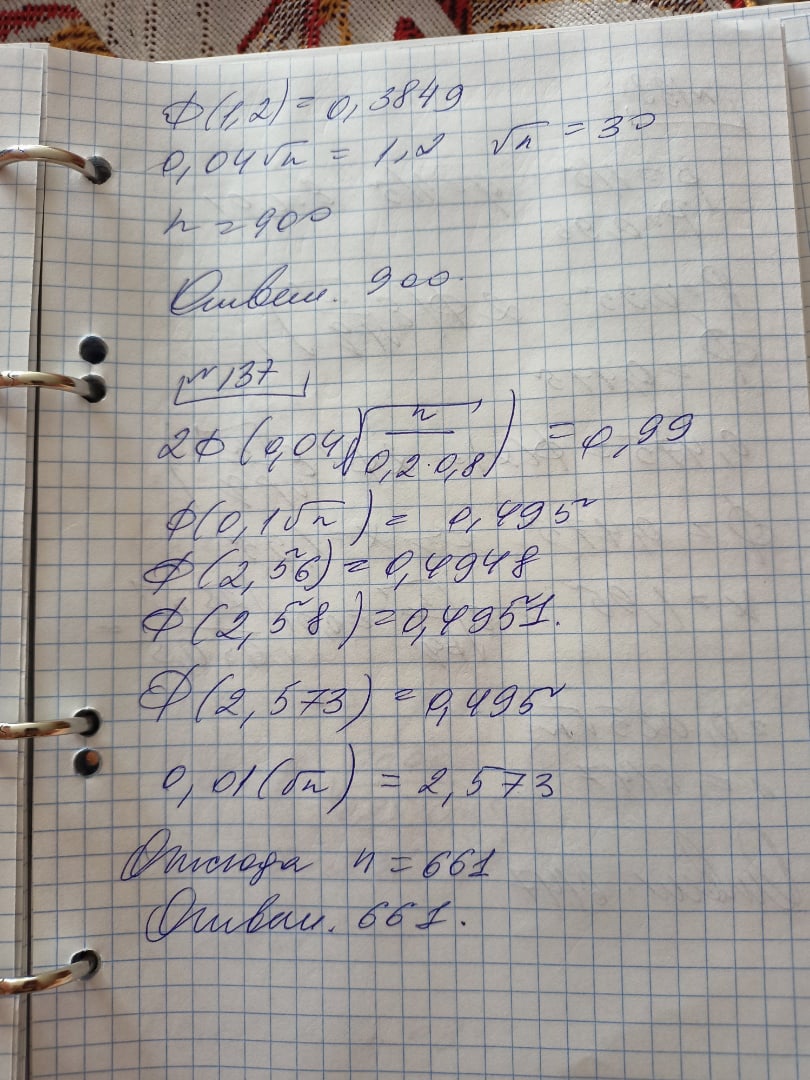 Ф(1,2) = 0,3849
0,04√n = 1,2 √n = 30
n = 900
Ответ. 900.
№ 137
2Ф(0,04√(n/(0,2·0,8))) = 0,99
Ф(0,1√n) = 0,495
Ф(2,56) = 0,4948
Ф(2,58) = 0,4951.
Ф(2,573) = 0,495
0,01(√n) = 2,573
Отсюда n = 661
Ответ. 661.